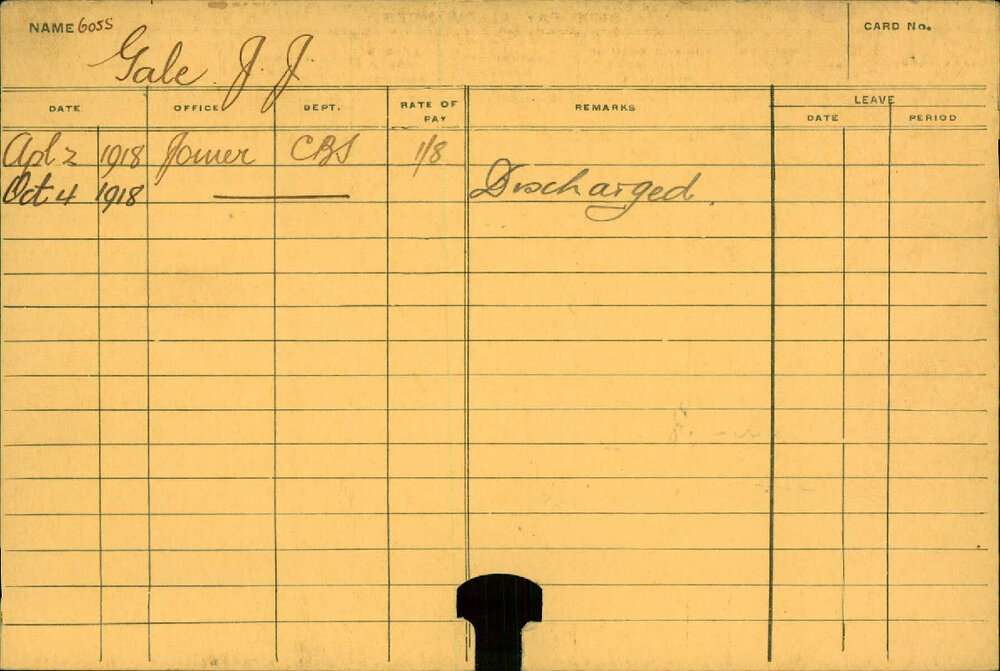 NAME 6055
Gale J. J.
CARD No.
DATE OFFICE DEPT. RATE OF PAY REMARKS LEAVE
DATE PERIOD
Apl 2 1918 Joiner CBS 1/8
Oct 4 1918 Discharged.